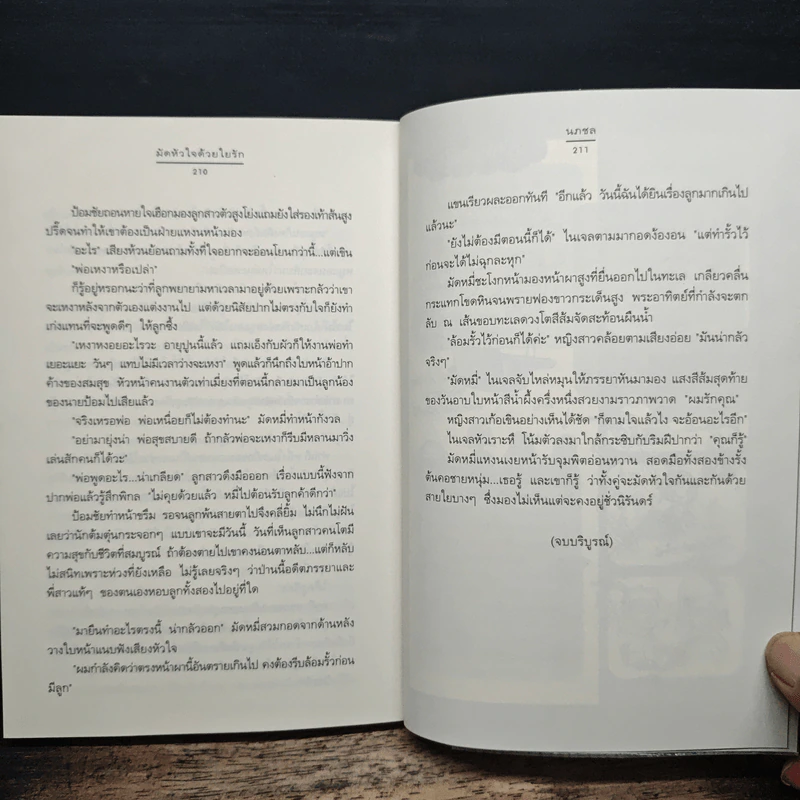 มัดหัวใจด้วยใยรัก
210
ป้อมชัยถอนหายใจเฮือกมองลูกสาวตัวสูงโย่งแถมยังใส่รองเท้าส้นสูง
ปรี๊ดจนทำให้เขาต้องเป็นฝ่ายแหงนหน้ามอง
"อะไร" เสียงห้วนย้อนถามทั้งที่ใจอยากจะอ่อนโยนกว่านี้...แต่เขิน
"พ่อเหงาหรือเปล่า"
ก็รู้อยู่หรอกนะว่าที่ลูกพยายามหาเวลามาอยู่ด้วยเพราะกลัวว่าเขา
จะเหงาหลังจากตัวเองแต่งงานไป แต่ด้วยนิสัยปากไม่ตรงกับใจก็ยังทำ
เก่งแทนที่จะพูดดีๆ ให้ลูกซึ้ง
"เหงาหงอยอะไรวะ อายุปูนนี้แล้ว แถมเอ็งกับผัวก็ให้งานพ่อทำ
เยอะแยะ วันๆ แทบไม่มีเวลาว่างจะเหงา" พูดแล้วก็นึกถึงใบหน้าอ้าปาก
ค้างของสมสุข หัวหน้าคนงานตัวเท่าเมี่ยงที่ตอนนี้กลายมาเป็นลูกน้อง
ของนายป้อมไปเสียแล้ว
"จริงเหรอพ่อ พ่อเหนื่อยก็ไม่ต้องทำนะ" มัดหมี่ทำหน้ากังวล
"อย่ามายุ่งน่า พ่อสุขสบายดี ถ้ากลัวพ่อจะเหงาก็รีบมีหลานมาวิ่ง
เล่นสักคนก็ได้วะ"
"พ่อพูดอะไร...น่าเกลียด" ลูกสาวดึงมือออก เรื่องแบบนี้ฟังจาก
ปากพ่อแล้วรู้สึกพิกล "ไม่คุยด้วยแล้ว หมี่ไปต้อนรับลูกค้าดีกว่า"
ป้อมชัยทำหน้าขรึม รอจนลูกพ้นสายตาไปจึงคลี่ยิ้ม ไม่นึกไม่ฝัน
เลยว่านักต้มตุ๋นกระจอกๆ แบบเขาจะมีวันนี้ วันที่เห็นลูกสาวคนโตมี
ความสุขกับชีวิตที่สมบูรณ์ ถ้าต้องตายไปเขาคงนอนตาหลับ...แต่ก็หลับ
ไม่สนิทเพราะห่วงที่ยังเหลือ ไม่รู้เลยจริงๆ ว่าป่านนี้อดีตภรรยาและ
พี่สาวแท้ๆ ของตนเองหอบลูกทั้งสองไปอยู่ที่ใด
"มายืนทำอะไรตรงนี้ น่ากลัวออก" มัดหมี่สวมกอดจากด้านหลัง
วางใบหน้าแนบฟังเสียงหัวใจ
"ผมกำลังคิดว่าตรงหน้าผานี้อันตรายเกินไป คงต้องรีบล้อมรั้วก่อน
มีลูก"
นภชล
211
แขนเรียวผละออกทันที "อีกแล้ว วันนี้ฉันได้ยินเรื่องลูกมากเกินไป
แล้วนะ"
"ยังไม่ต้องมีตอนนี้ก็ได้" ไนเจลตามมากอดง้องอน "แต่ทำรั้วไว้
ก่อนจะได้ไม่ฉุกละหุก"
มัดหมี่ชะโงกหน้ามองหน้าผาสูงที่ยื่นออกไปในทะเล เกลียวคลื่น
กระแทกโขดหินจนพรายฟองขาวกระเด็นสูง พระอาทิตย์ที่กำลังจะตก
ลับ ณ เส้นขอบทะเลดวงโตสีส้มจัดสะท้อนผืนน้ำ
"ล้อมรั้วไว้ก่อนก็ได้ค่ะ" หญิงสาวคล้อยตามเสียงอ่อย "มันน่ากลัว
จริงๆ"
"มัดหมี่" ไนเจลจับไหล่หมุนให้ภรรยาหันมามอง แสงสีส้มสุดท้าย
ของวันอาบใบหน้าสีน้ำผึ้งครึ่งหนึ่งสวยงามราวภาพวาด "ผมรักคุณ"
หญิงสาวเก้อเขินอย่างเห็นได้ชัด "ก็ตามใจแล้วไง จะอ้อนอะไรอีก"
ไนเจลหัวเราะหึ โน้มตัวลงมาใกล้กระซิบกับริมฝีปากว่า "คุณก็รู้"
มัดหมี่แหงนเงยหน้ารับจุมพิตอ่อนหวาน สอดมือทั้งสองข้างรั้ง
ต้นคอชายหนุ่ม...เธอรู้ และเขาก็รู้ ว่าทั้งคู่จะมัดหัวใจกันและกันด้วย
สายใยบางๆ ซึ่งมองไม่เห็นแต่จะคงอยู่ชั่วนิรันดร์
(จบบริบูรณ์)